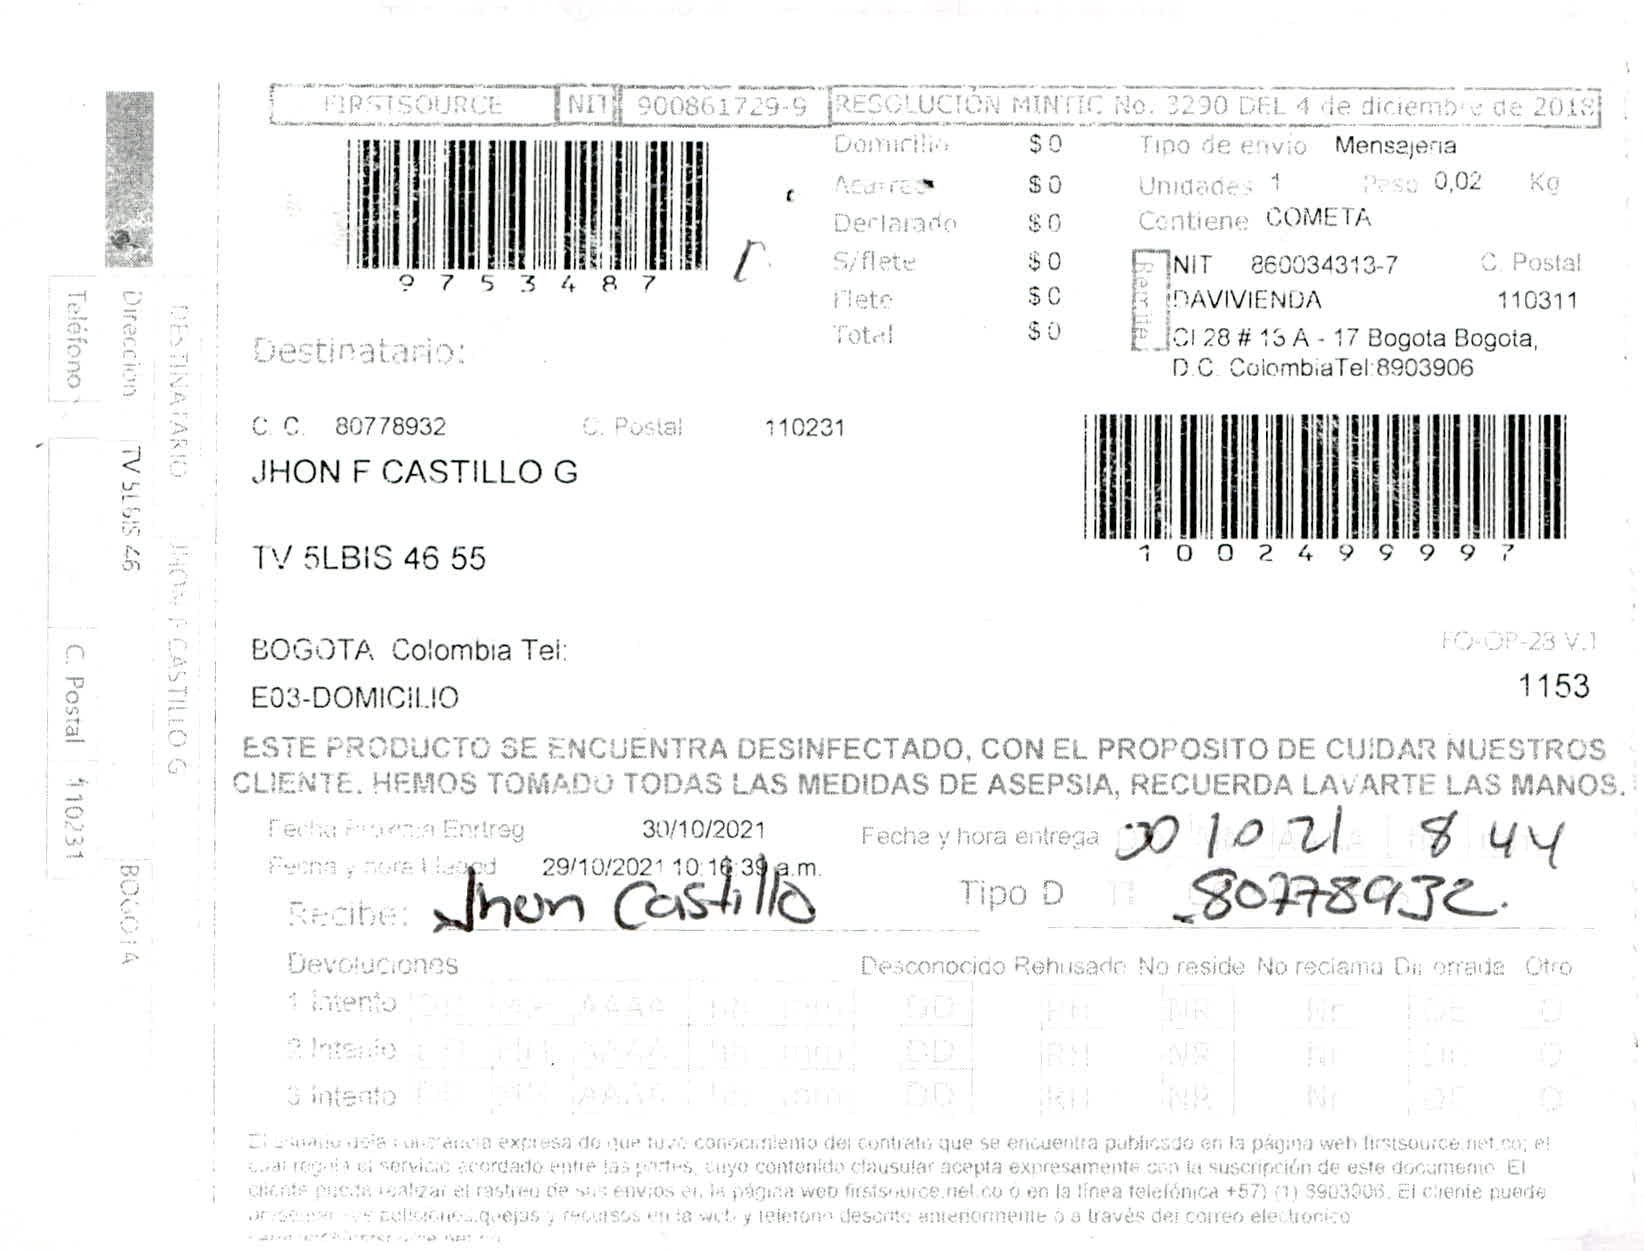 FIRSTSOURCE NIT 900861729-9 RESOLUCIÓN MINTIC No. 3290 DEL 4 de diciembre de 2018
Domicilio $0 Tipo de envio Mensajeria
Acarreo $0 Unidades 1 Peso 0,02 Kg
Declarado $0 Contiene COMETA
9753487
S/flete $0
Flete $0
Total $0
Remite
NIT 860034313-7 C. Postal
DAVIVIENDA 110311
Cl 28 # 13 A - 17 Bogota Bogota,
D.C. ColombiaTel:8903906
Destinatario:
C. C. 80778932 C. Postal 110231
JHON F CASTILLO G
1002499997
TV 5LBIS 46 55
BOGOTA Colombia Tel:
FO-OP-28 V.1
E03-DOMICILIO
1153
ESTE PRODUCTO SE ENCUENTRA DESINFECTADO, CON EL PROPOSITO DE CUIDAR NUESTROS
CLIENTE. HEMOS TOMADO TODAS LAS MEDIDAS DE ASEPSIA, RECUERDA LAVARTE LAS MANOS.
Fecha Entreg 30/10/2021 Fecha y hora entrega 1021 8 44
Fecha y hora 29/10/2021 10:16:39 a.m.
Recibe: Jhon Castillo Tipo D 80778932.
Devoluciones Desconocido Rehusado No reside No reclama Dir errada Otro
1 Intento DD MM AAAA hh mm DD RH NR Nr DE O
2 Intento DD MM AAAA hh mm DD RH NR Nr DE O
3 Intento DD MM AAAA hh mm DD RH NR Nr DE O
El usuario deja constancia expresa de que tuvo conocimiento del contrato que se encuentra publicado en la página web firstsource.net.co; el
cual regula el servicio acordado entre las partes, cuyo contenido clausular acepta expresamente con la suscripción de este documento. El
cliente puede realizar el rastreo de sus envios en la página web firstsource.net.co o en la línea telefónica +57) (1) 8903906. El cliente puede
peticiones,quejas y recursos en la web y telefono descrito anteriormente o a través del correo electronico
DESTINATARIO JHON F CASTILLO G
Dirección TV 5LBIS 46 BOGOTA
Teléfono C. Postal 110231